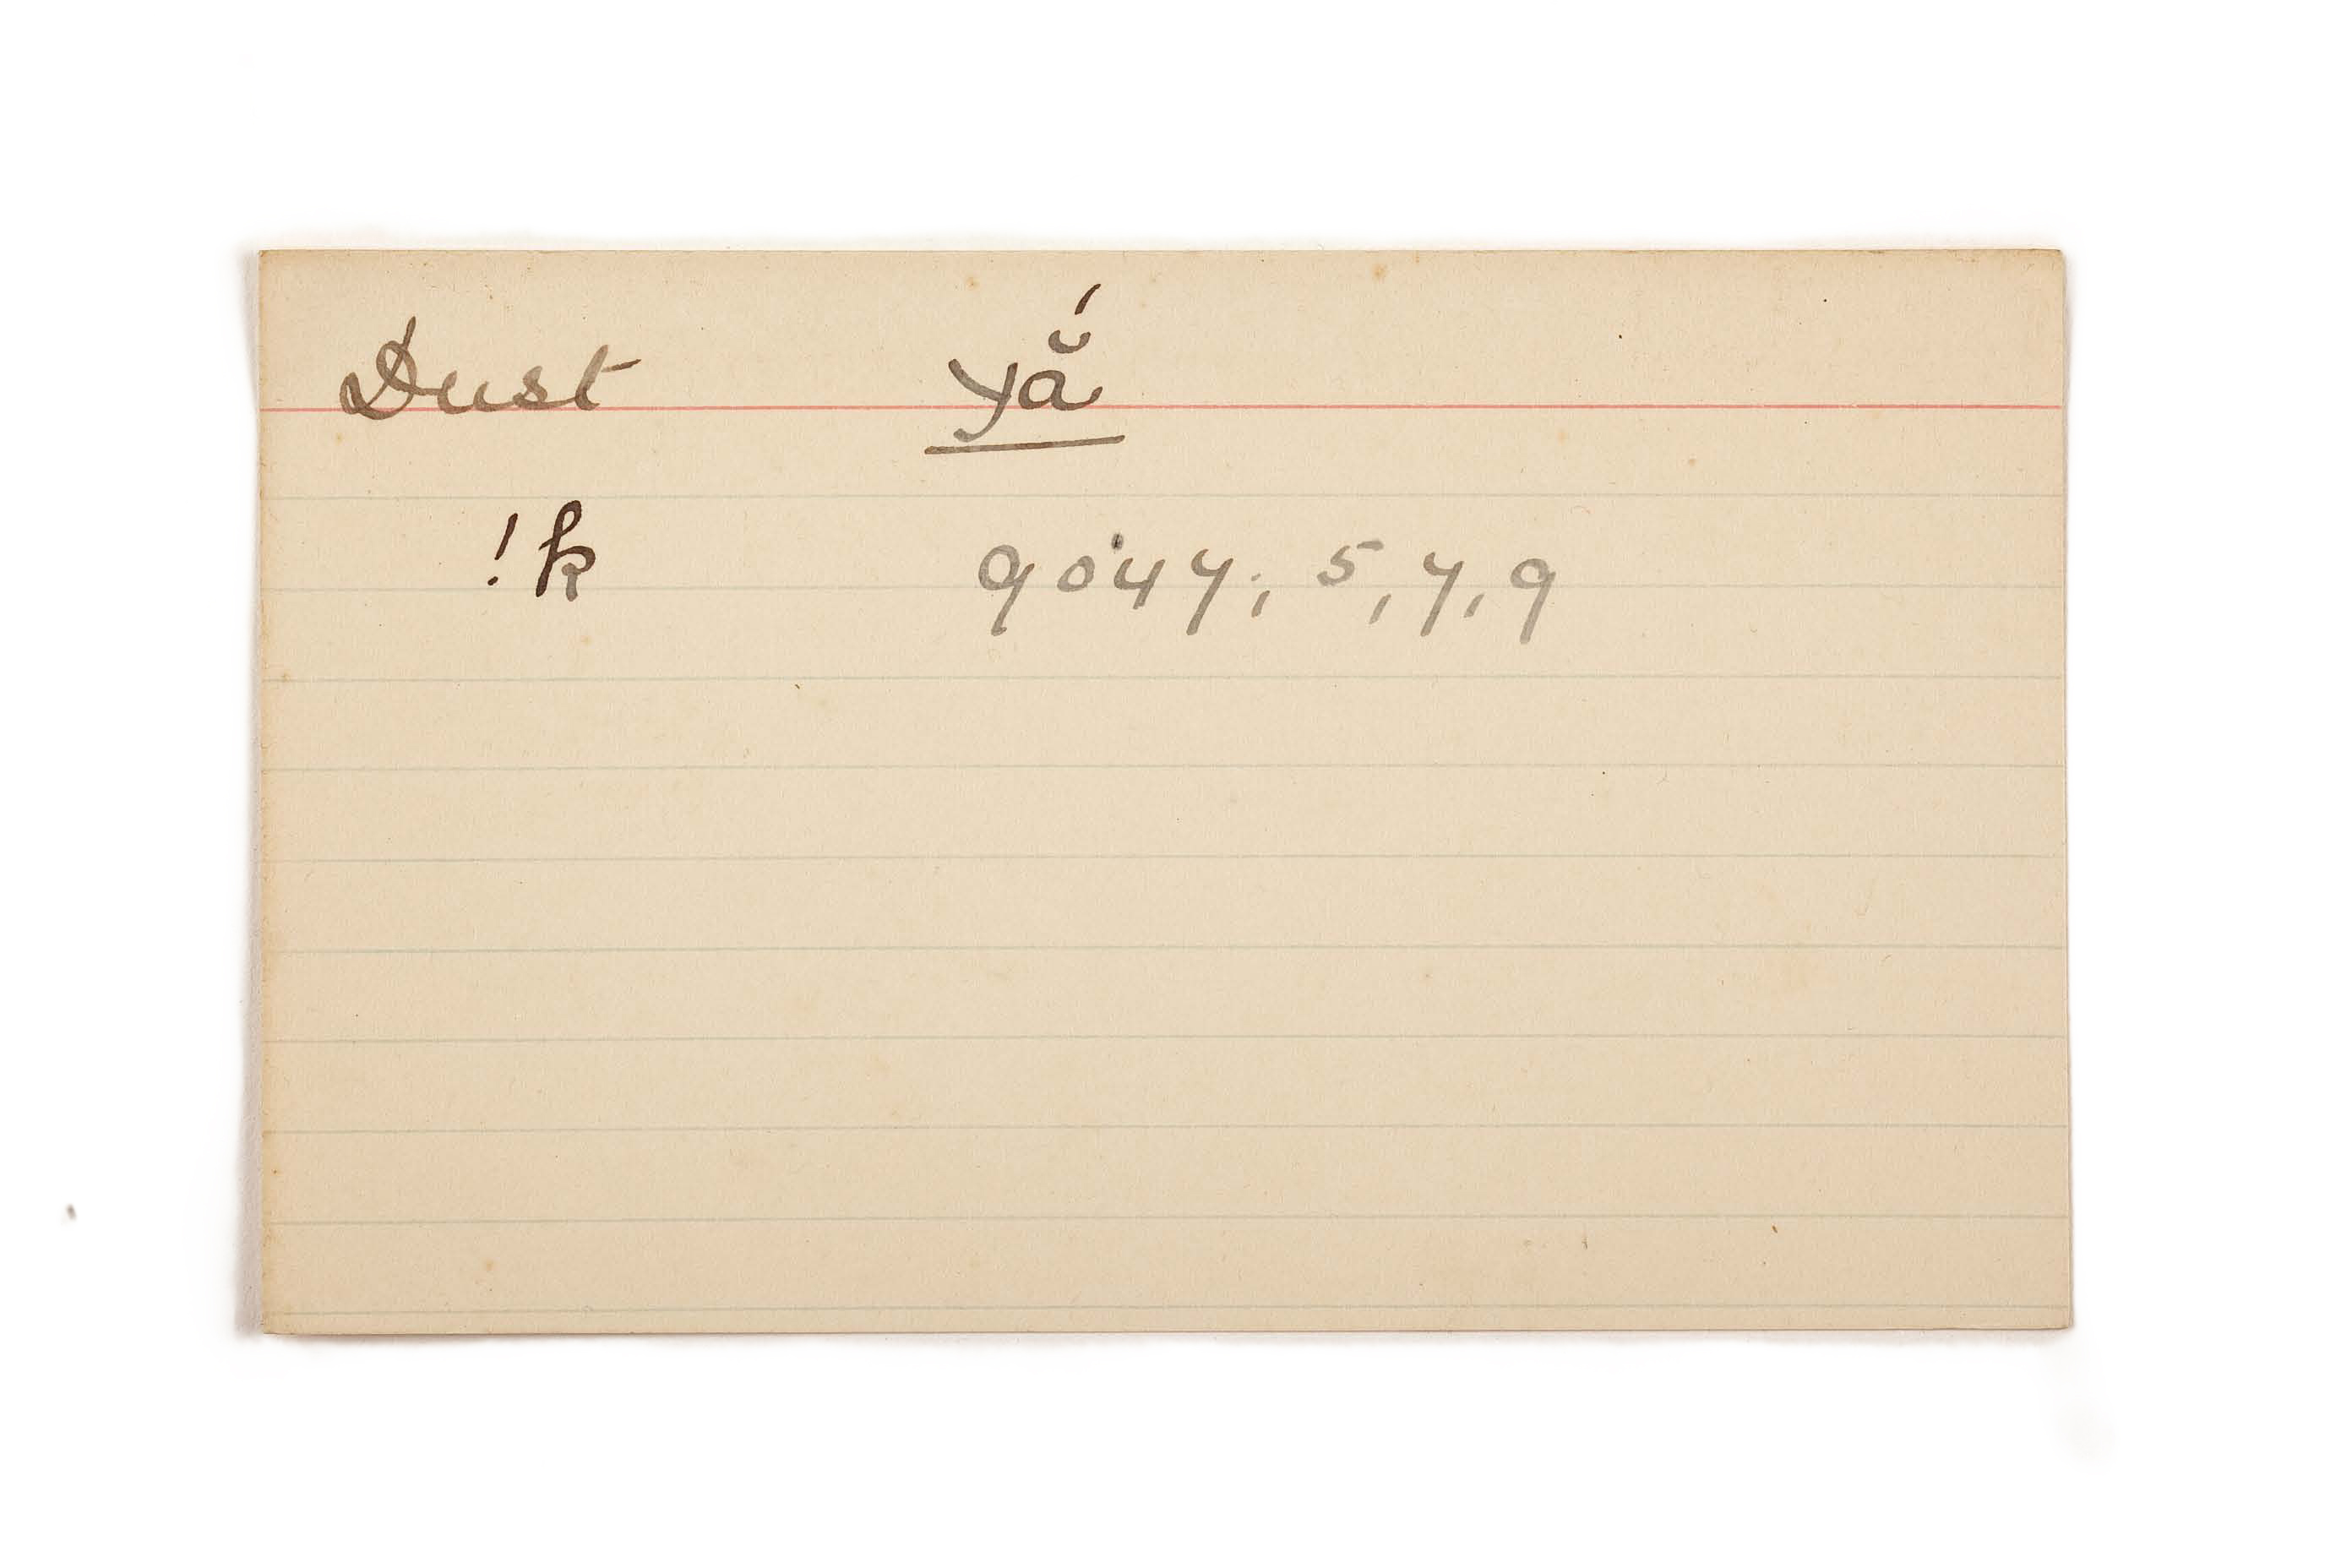 Dust yắ
!k 9047; 5, 7, 9